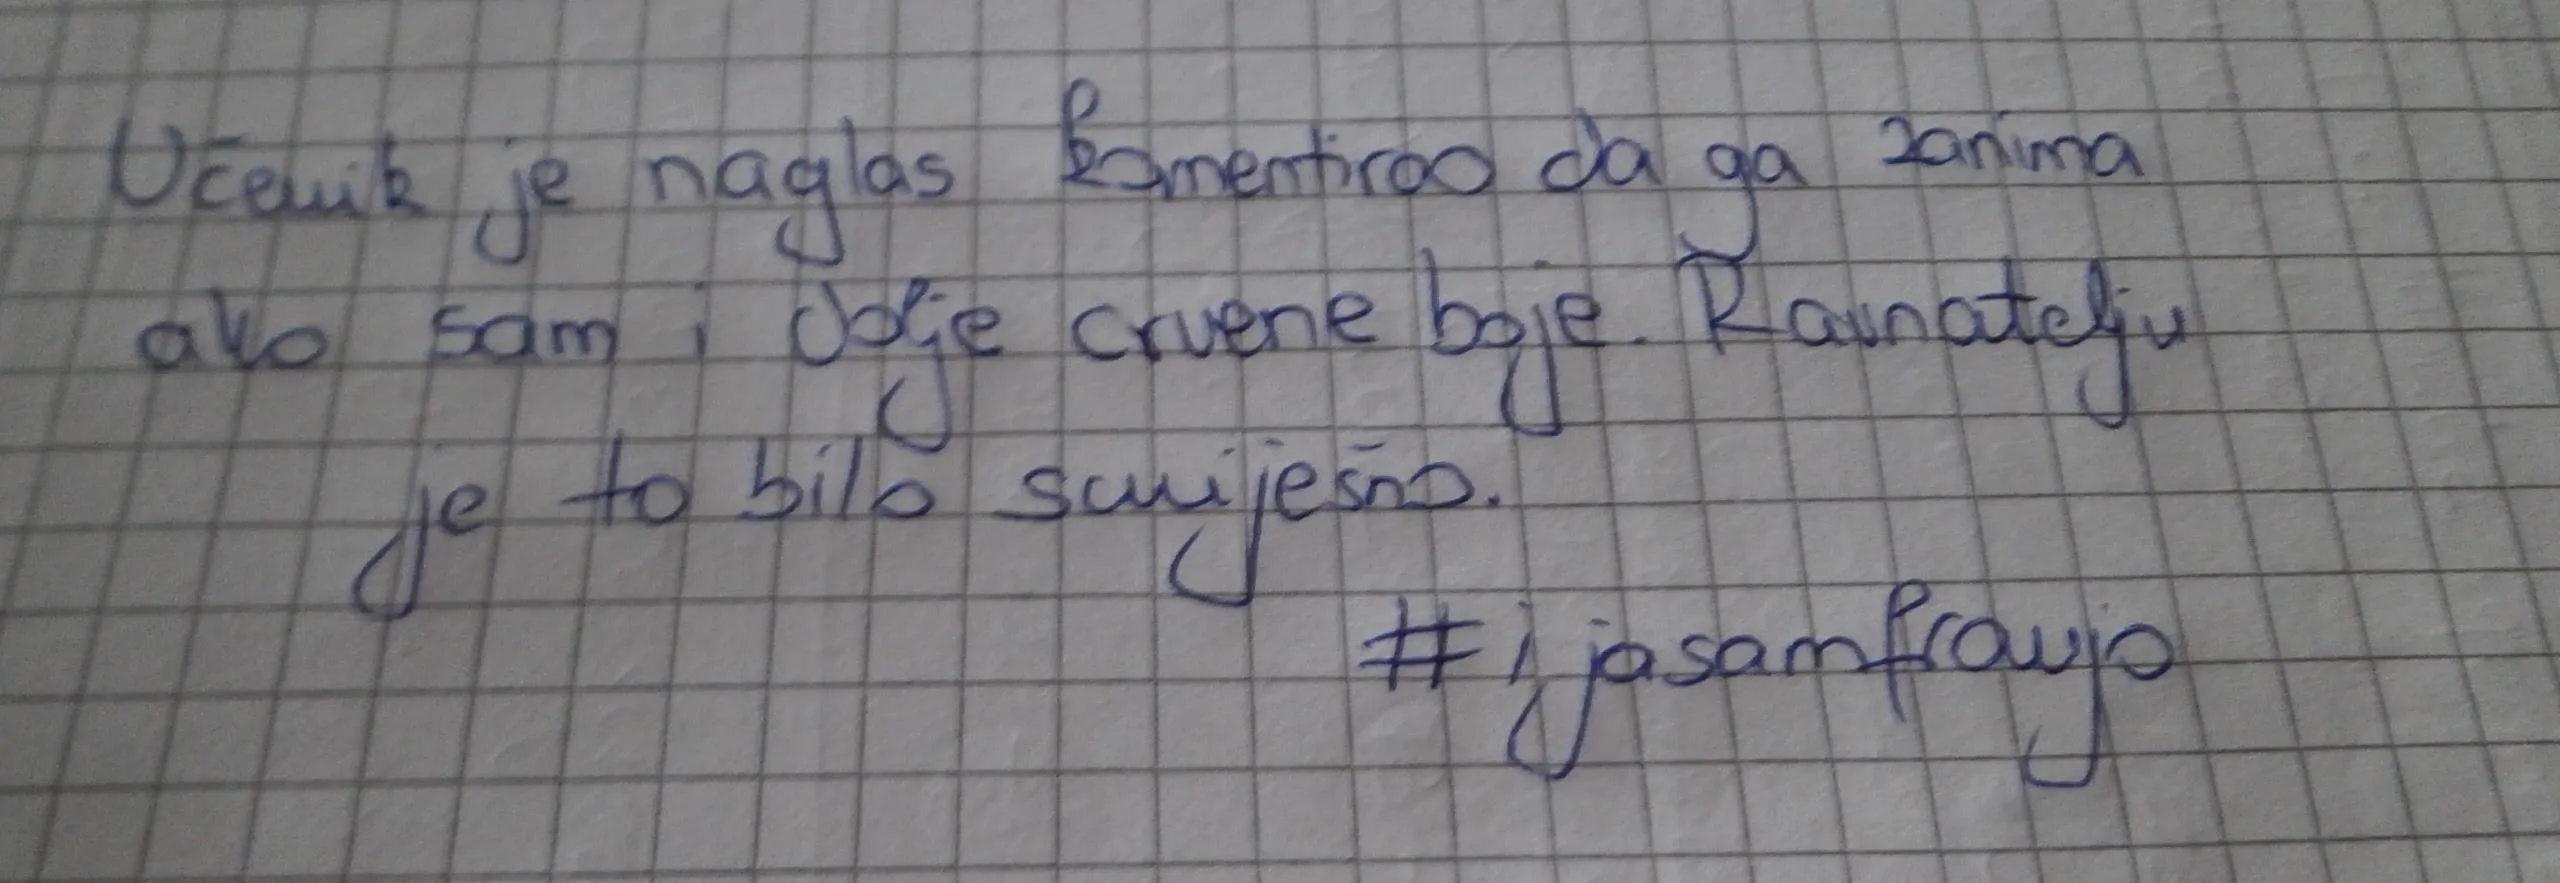 Učenik je naglas komentirao da ga zanima
ako sam i dolje crvene boje. Ravnatelju
je to bilo smiješno.
#ijasamfrajo